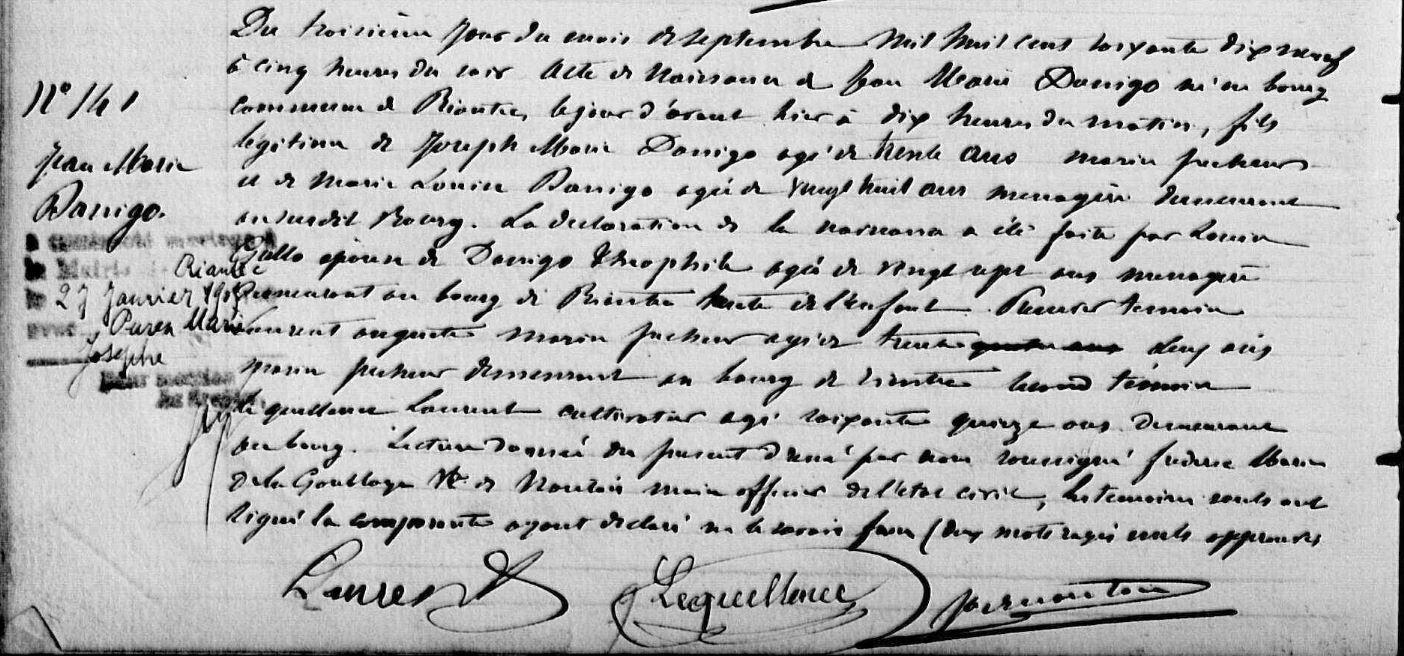 Du troisième jour du mois de septembre mil huit cent soixante dix neuf
à cinq heures du soir Acte de Naissance de Jean Marie Danigo né au bourg
commune de Riantec, le jour d'avant hier à dix heures du matin, fils
légitime de Joseph Marie Danigo agé de trente ans marin pecheur
et de Marie Louise Danigo agée de vingt huit ans menagère demeurant
au susdit Bourg. La declaration de la naissance a été faite par Louise
épouse de Danigo Théophile agée de vingt sept ans menagère
demeurant au bourg de Riantec tante de l'enfant. Premier temoin
Laurent auguste marin pecheur agé de trente deux ans
marin pecheur demeurant au bourg de riantec second témoin
Le quellenec Laurent cultivateur agé soixante quinze ans demeurant
au bourg. Lecture donnée du present par nous soussigné frederic Marie
de la Goublaye Vte de Nantois maire officier de l'état civil, les temoins seuls ont
signé la comparante ayant declaré ne le savoir faire (deux mots rayés nuls approuvés
N° 141
Jean Marie
Danigo.
A contracté mariage à
la Mairie de Riantec
le 27 Janvier
avec Puren Marie
Josephe
Pour mention
Laurent A
Lequellenec